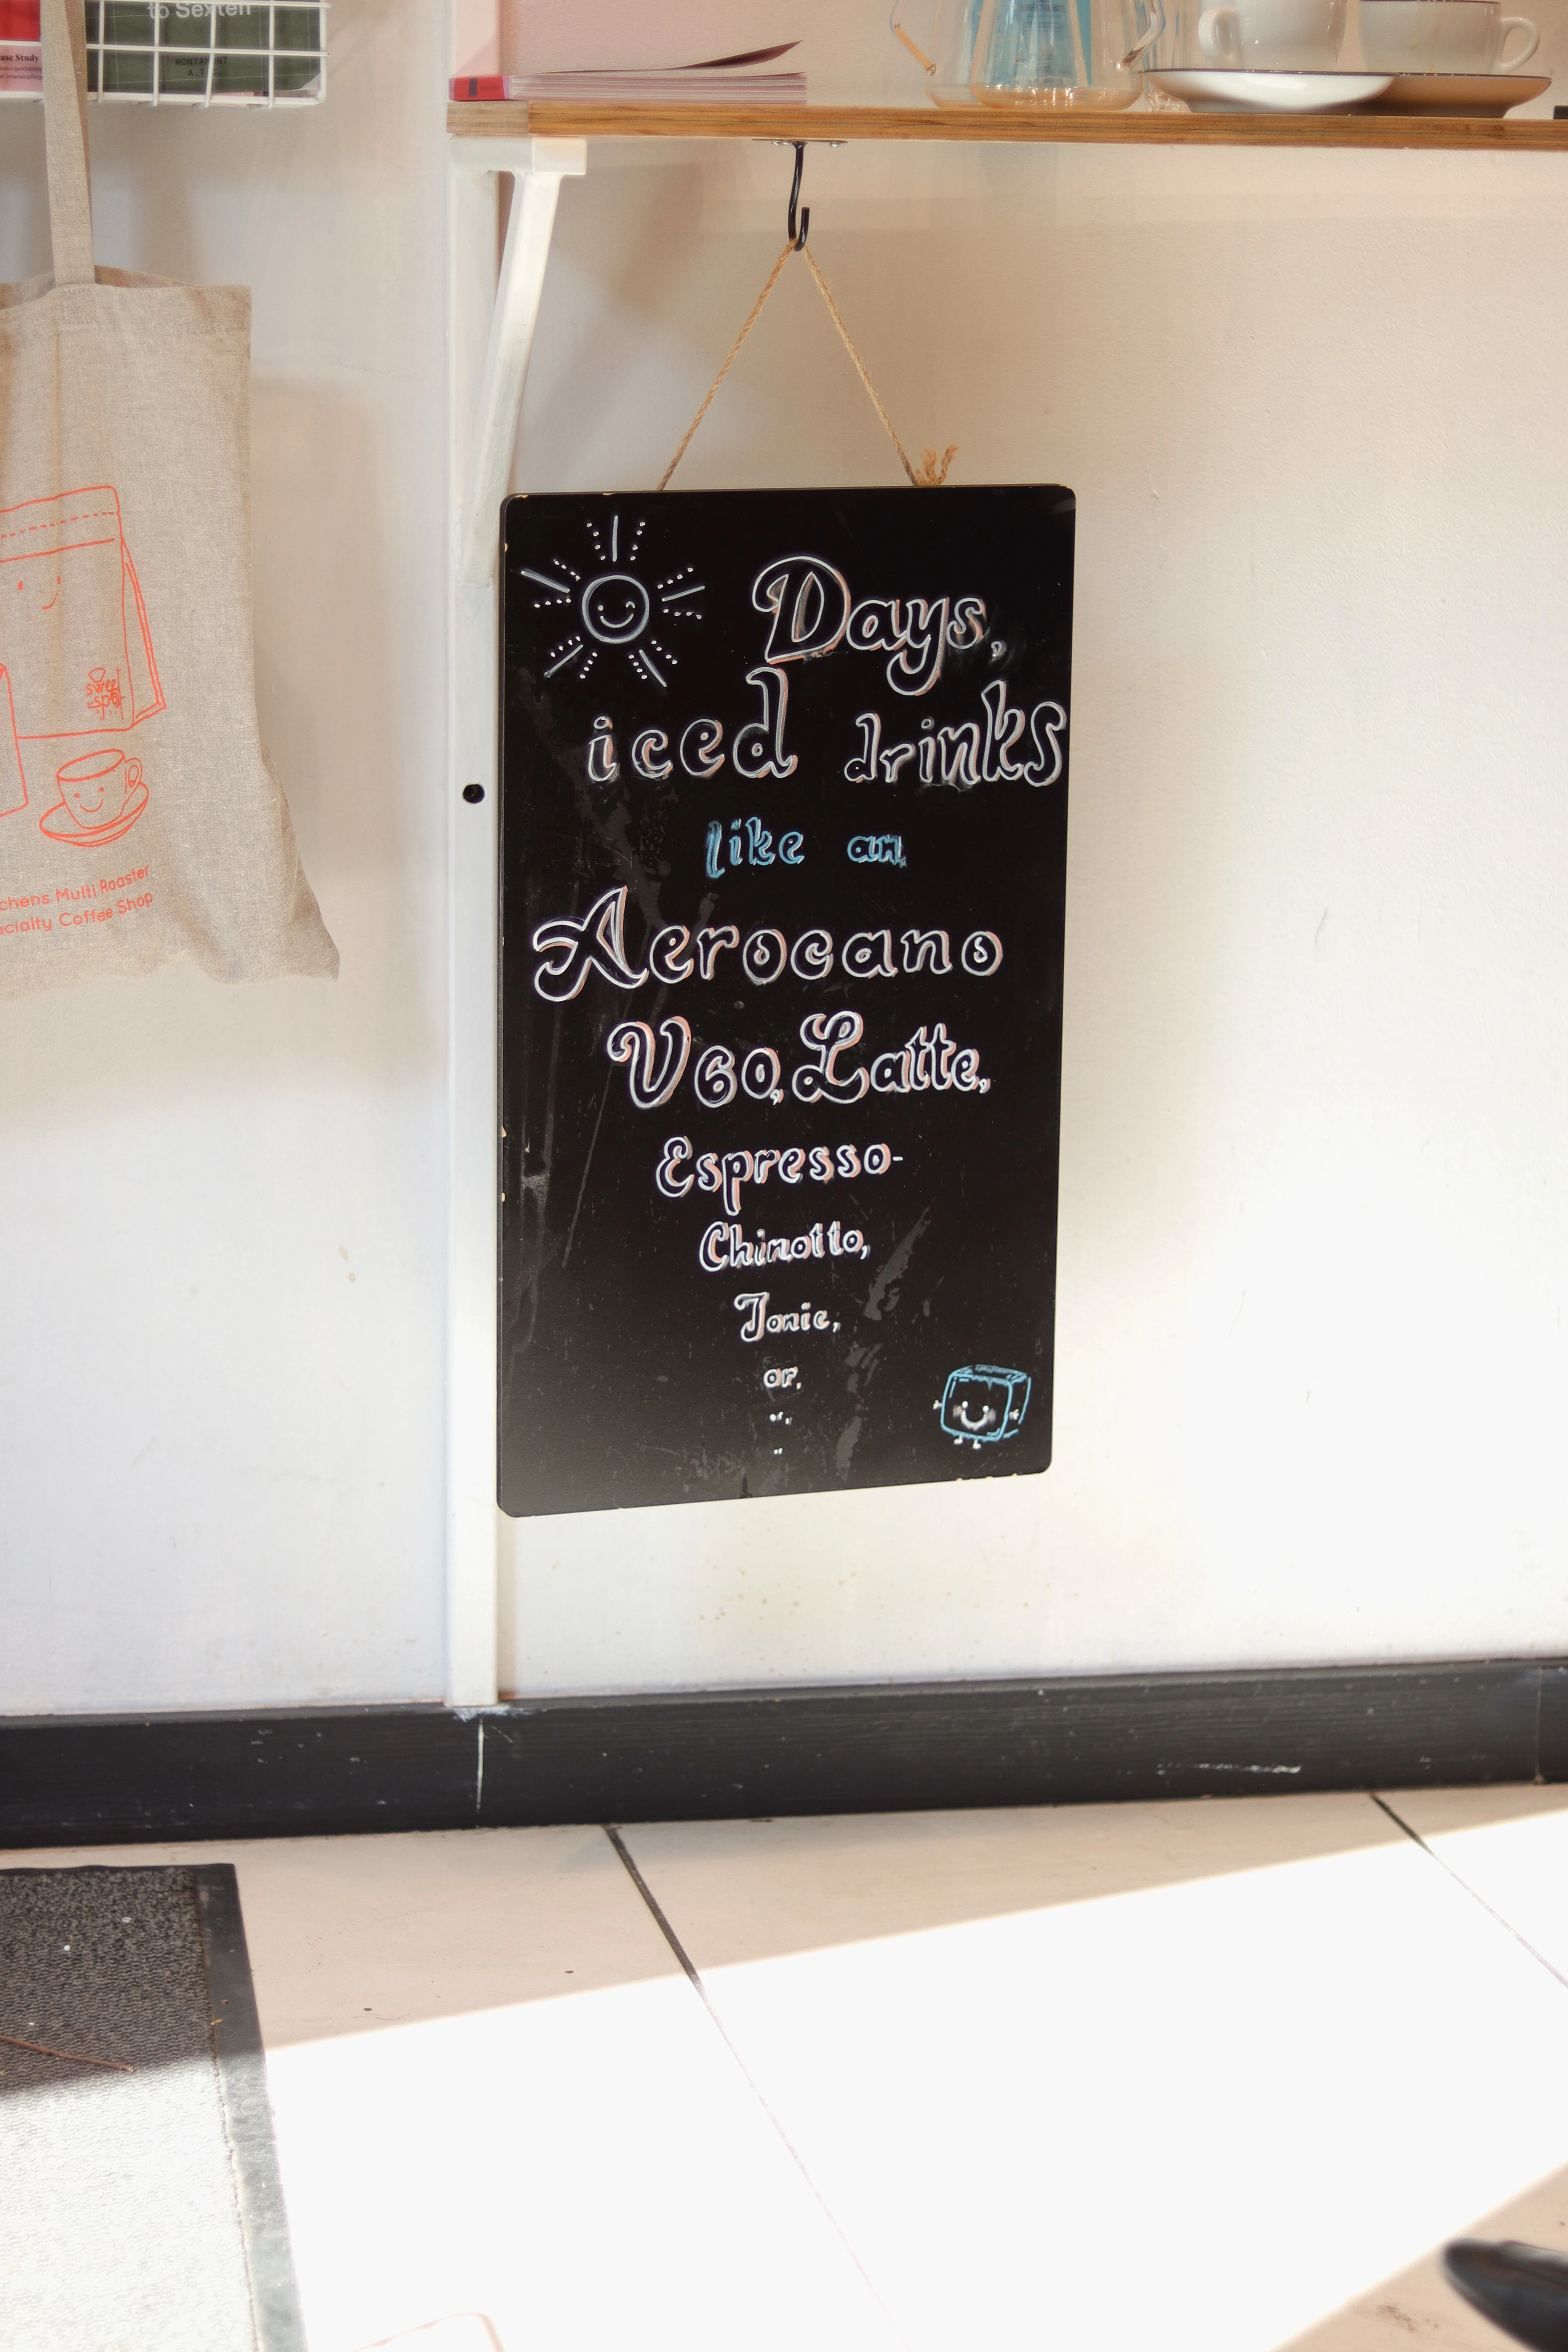 to Sexten
MONTAFONT
ase Study
Days,
iced drinks
like an
Aerocano
V60, Latte,
Espresso-
Chinotto,
Tonic,
or,
or,
sweet
spot
chens Multi Roaster
ecialty Coffee Shop